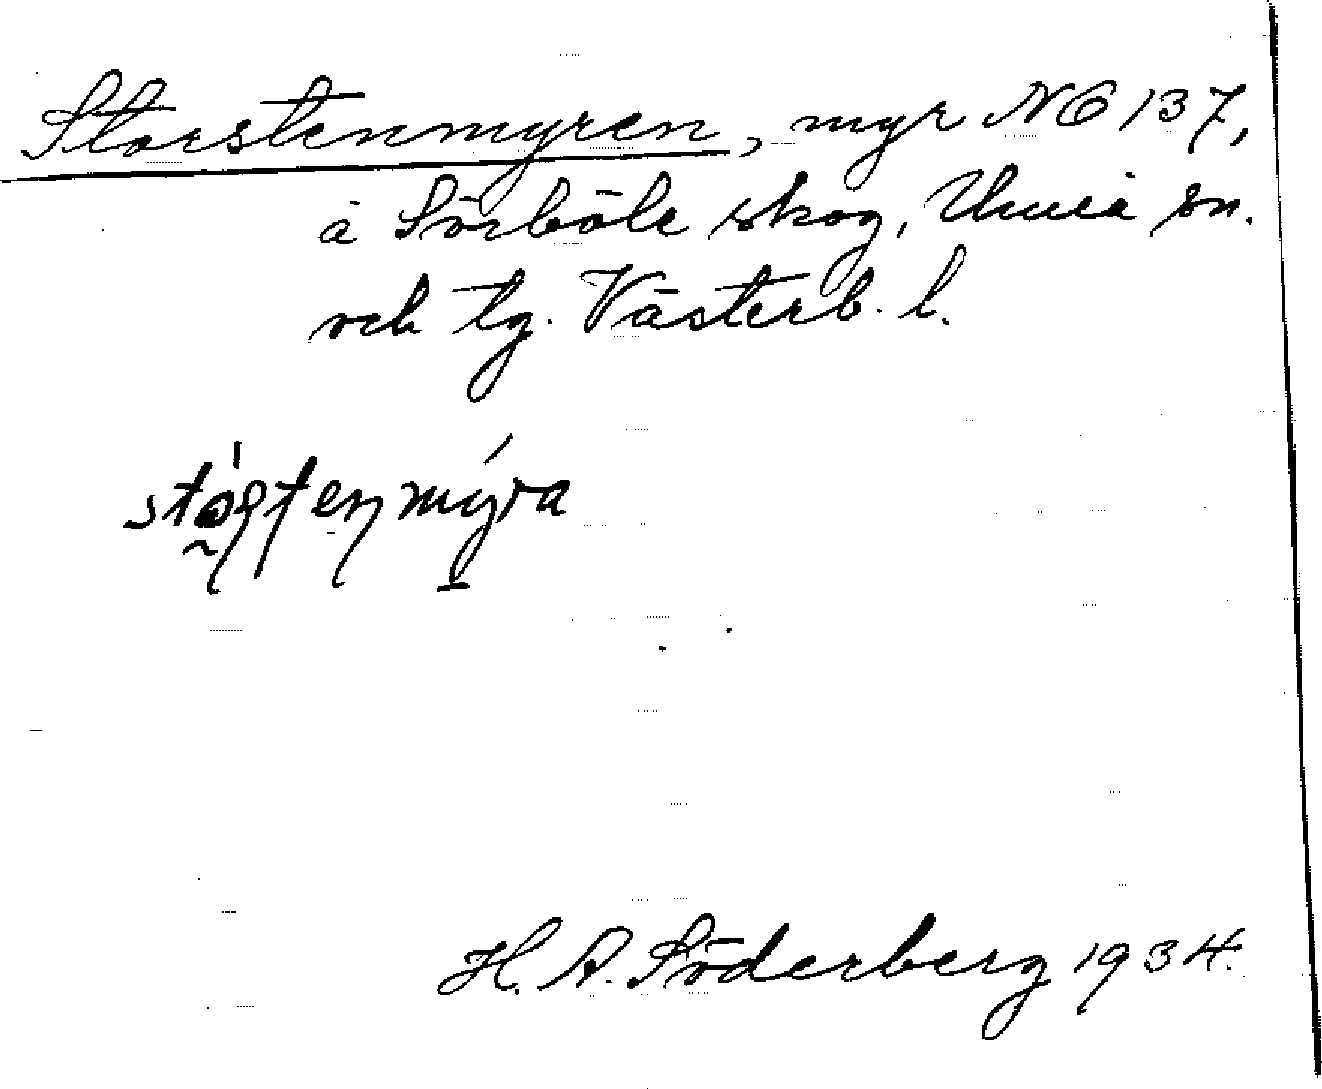 Storstenmyren, myr NÖ 137,
å Sörböle skog, Umeå sn.
och tg. Västerb. l.
H. A. Söderberg 1934.